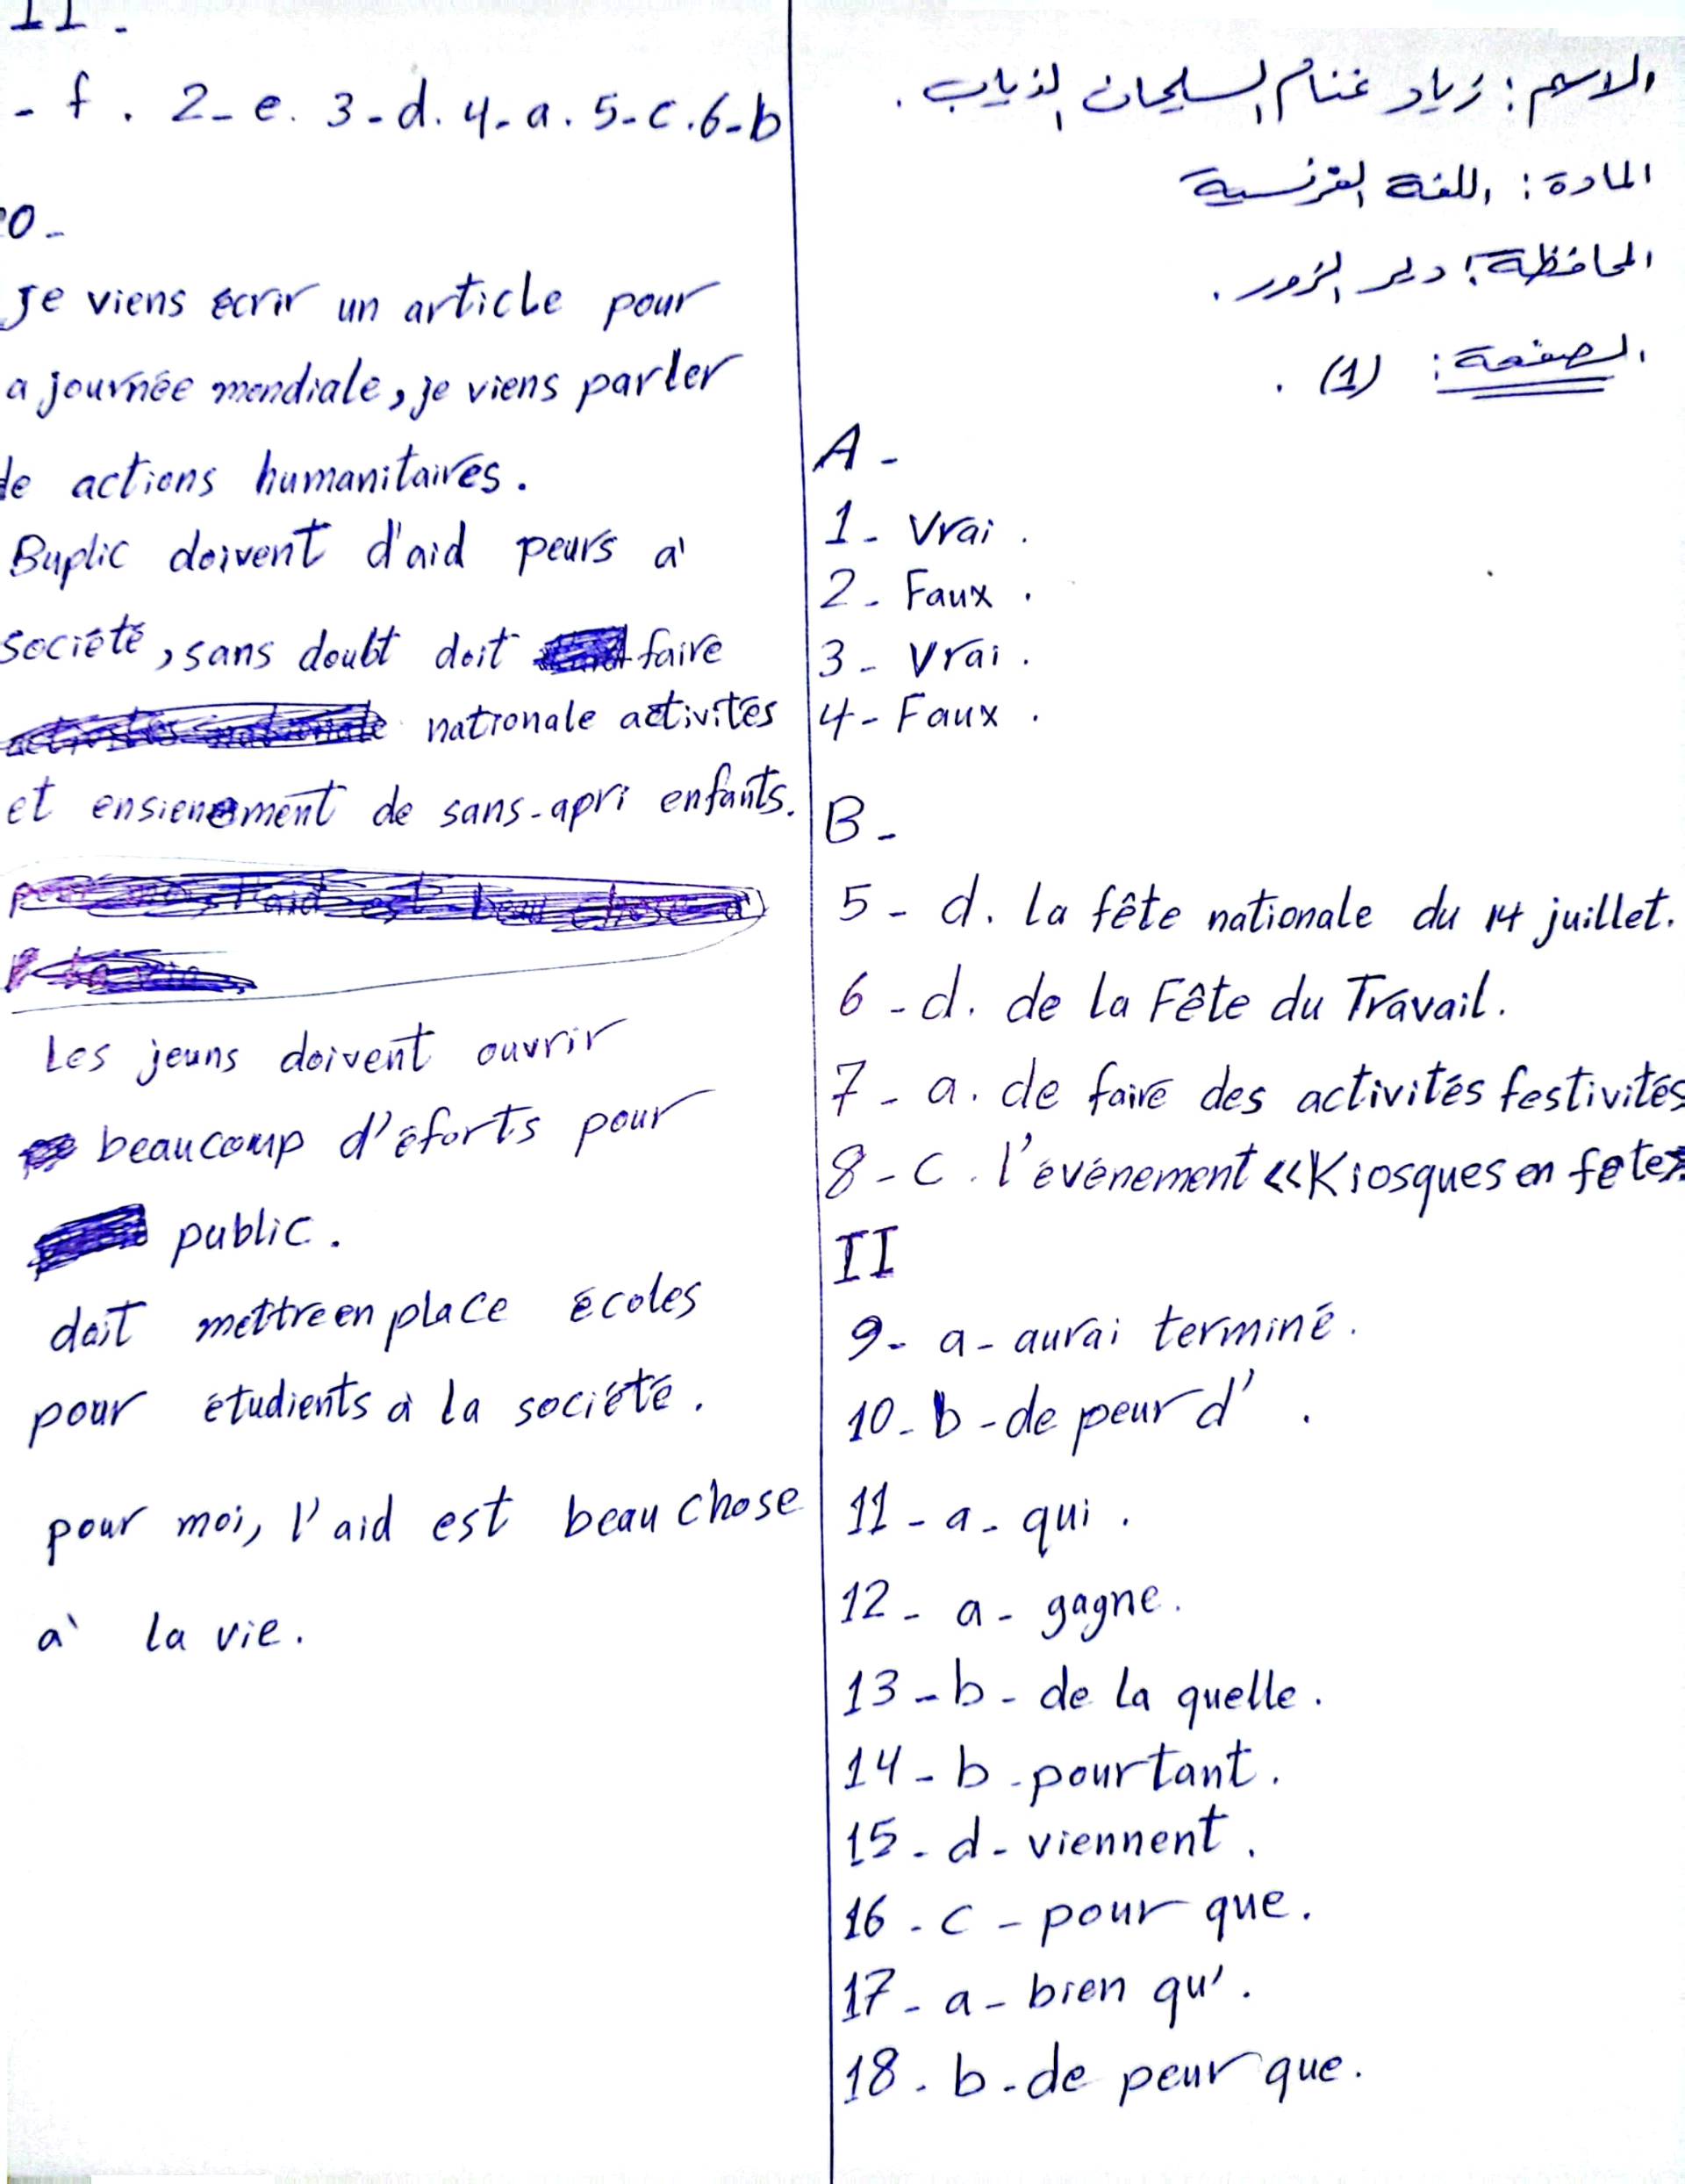 الاسم : زياد غنام السليمان الذياب .
المادة : اللغة الفرنسية
المحافظة : دير الزور .
الصفحة : (1) .
A -
1 - Vrai .
2 - Faux .
3 - Vrai .
4 - Faux .
B -
5 - d. la fête nationale du 14 juillet.
6 - d. de la Fête du Travail.
7 - a. de faire des activités festivités
8 - c. l'événement «Kiosques en fete»
II
9 - a - aurai terminé.
10 - b - de peur d' .
11 - a - qui .
12 - a - gagne.
13 - b - de la quelle .
14 - b - pourtant .
15 - d - viennent .
16 - c - pour que .
17 - a - bien qu' .
18 - b - de peur que .
II -
- f . 2 - e. 3 - d. 4 - a . 5 - c . 6 - b
0 -
Je viens écrir un article pour
a journée mondiale, je viens parler
de actions humanitaires .
Buplic doivent d'aid peurs a'
société, sans doubt doit faire
nationale activités
et ensienement de sans-apri enfants.
Les jeuns doivent ouvrir
beaucoup d'éforts pour
public .
doit mettre en place écoles
pour étudients à la société .
pour moi, l'aid est beau chose
a' la vie .